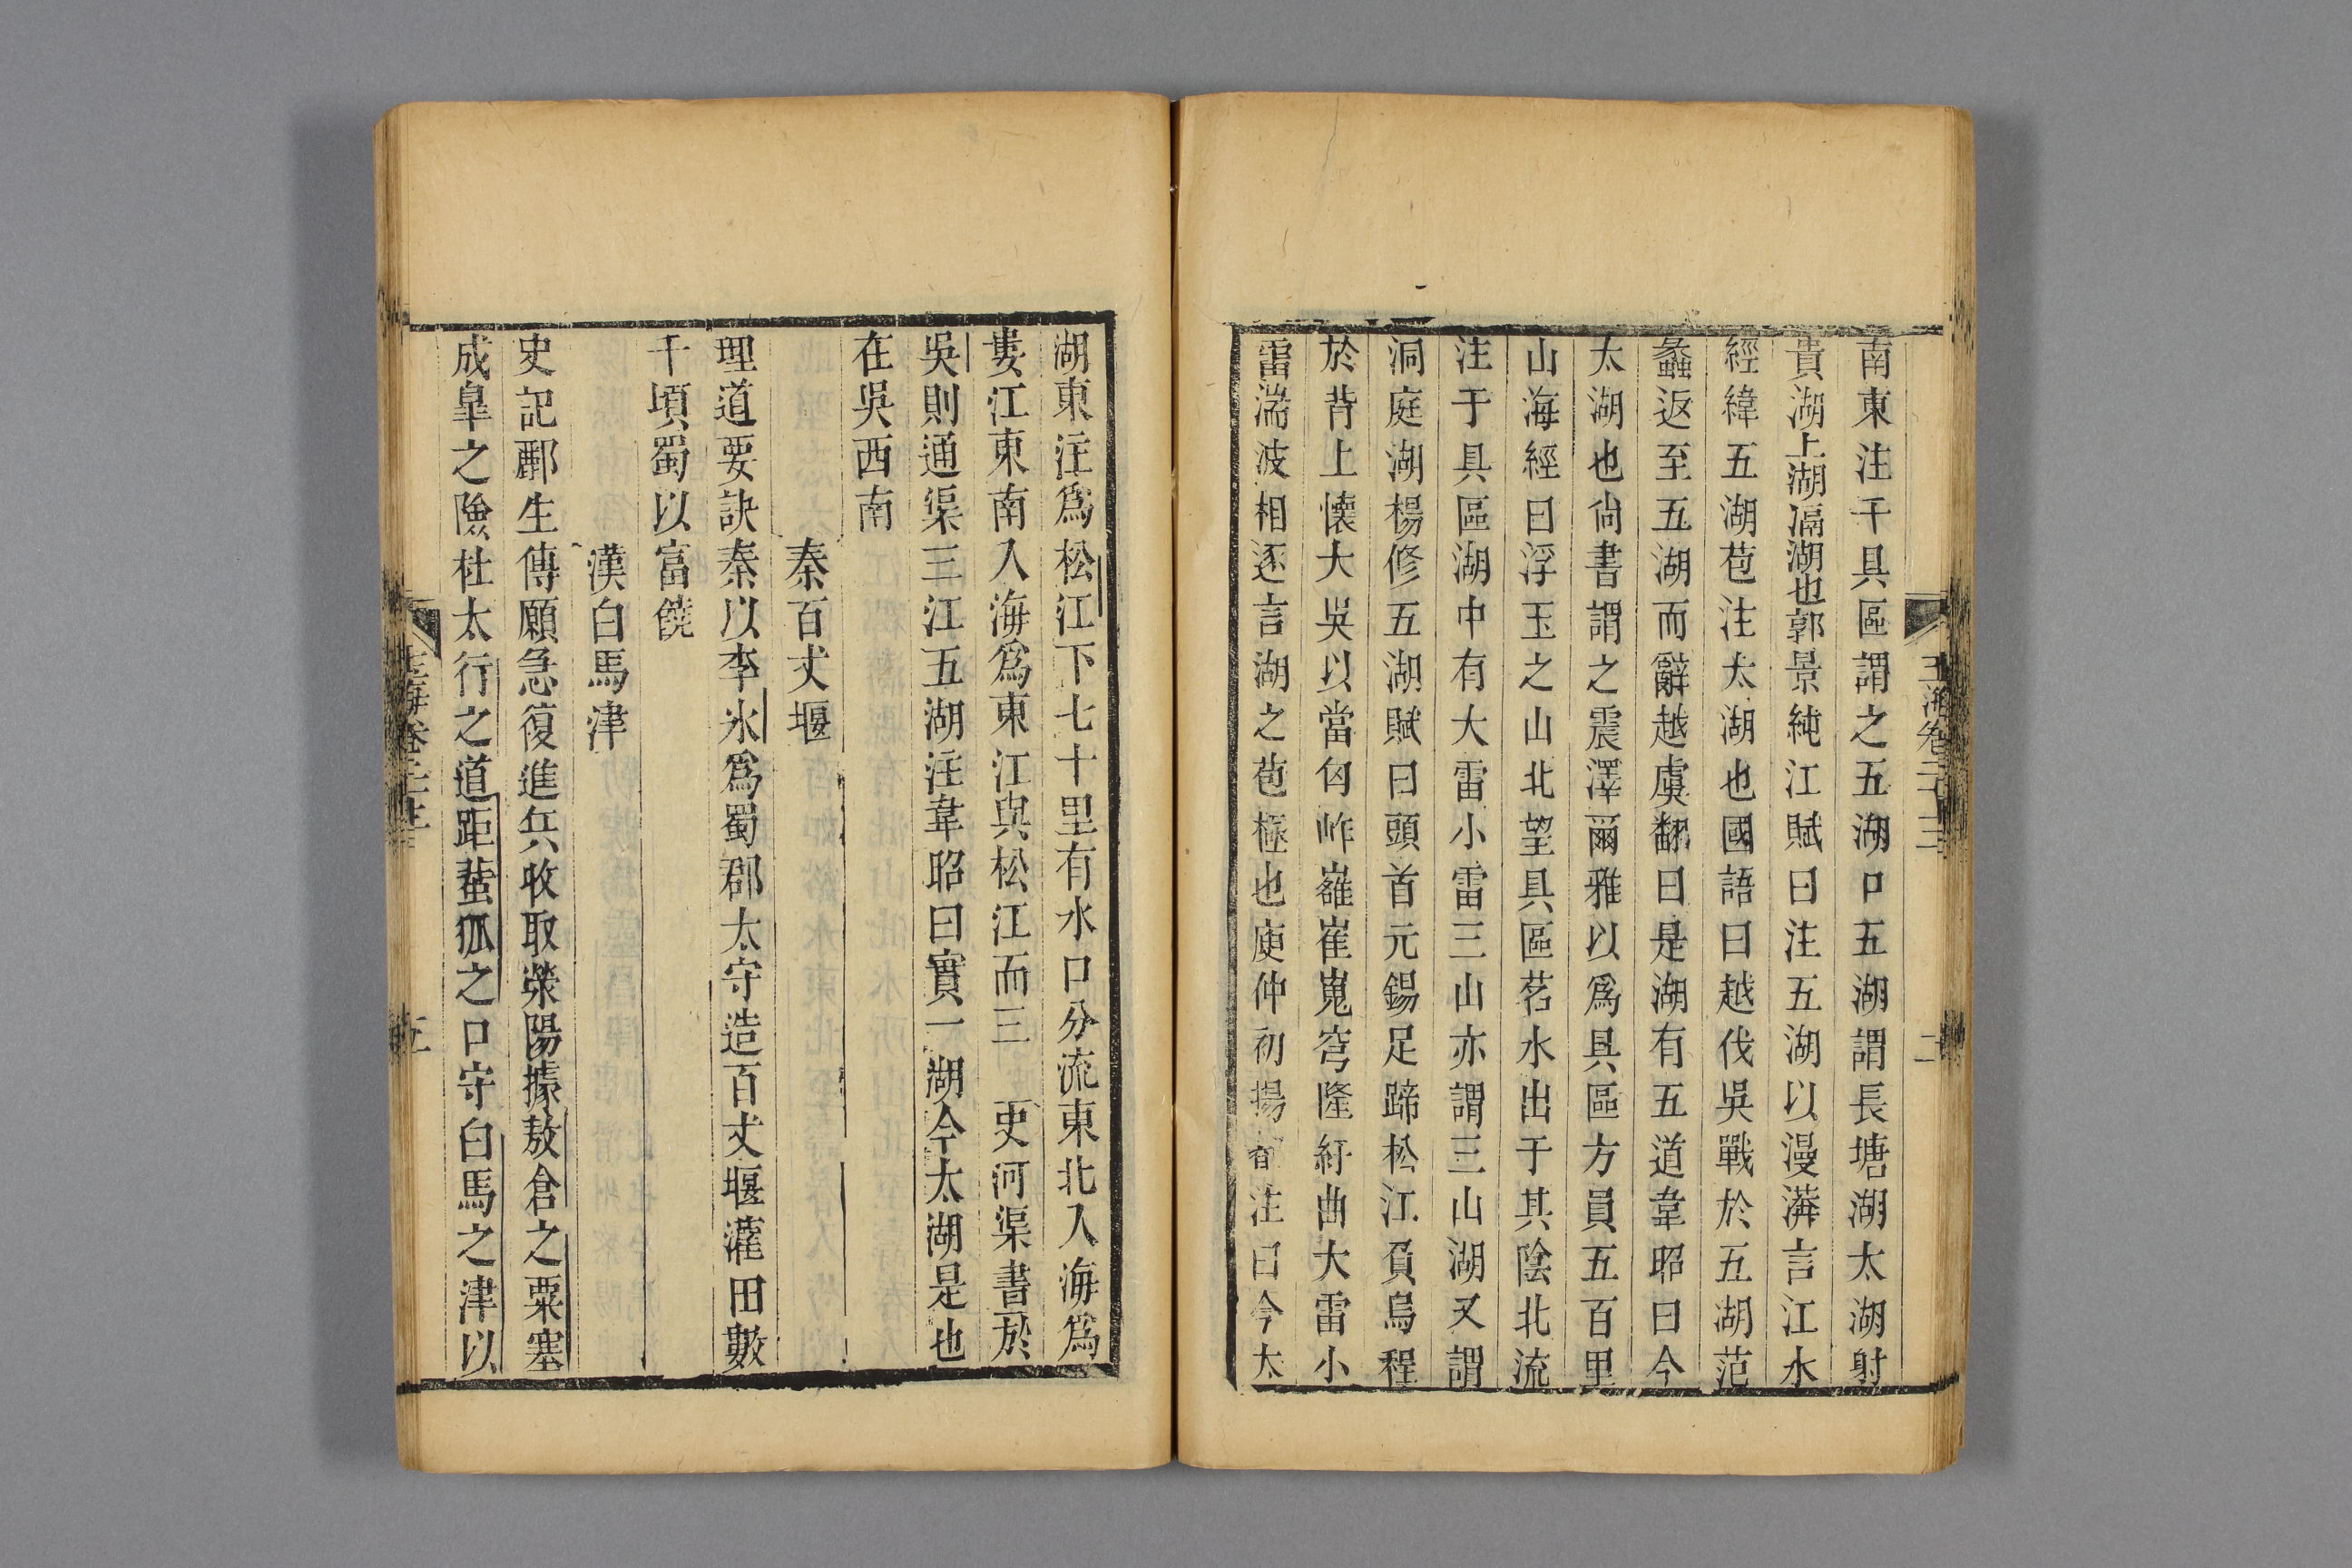 玉海卷二十三
二
南東注于具區謂之五湖口五湖謂長塘湖太湖射
貴湖上湖滆湖也郭景純江賦曰注五湖以漫漭言江水
經緯五湖苞注太湖也國語曰越伐吳戰於五湖范
蠡返至五湖而辭越虞翻曰是湖有五道韋昭曰今
太湖也尙書謂之震澤爾雅以爲具區方員五百里
山海經曰浮玉之山北望具區苕水出于其陰北流
注于具區湖中有大雷小雷三山亦謂三山湖又謂
洞庭湖楊修五湖賦曰頭首元錫足蹄松江負烏程
於背上懷大吳以當匈岞巀崔嵬穹隆紆曲大雷小
雷湍波相逐言湖之苞極也庾仲初揚都注曰今太
湖東注爲松江下七十里有水口分流東北入海爲
婁江東南入海爲東江與松江而三 史河渠書於
吳則通渠三江五湖注韋昭曰實一湖今太湖是也
在吳西南
秦百丈堰
理道要訣秦以李氷爲蜀郡太守造百丈堰灌田數
千頃蜀以富饒
漢白馬津
史記酈生傳願急復進兵收取滎陽據敖倉之粟塞
成皐之險杜太行之道距蜚狐之口守白馬之津以
玉海卷二十三